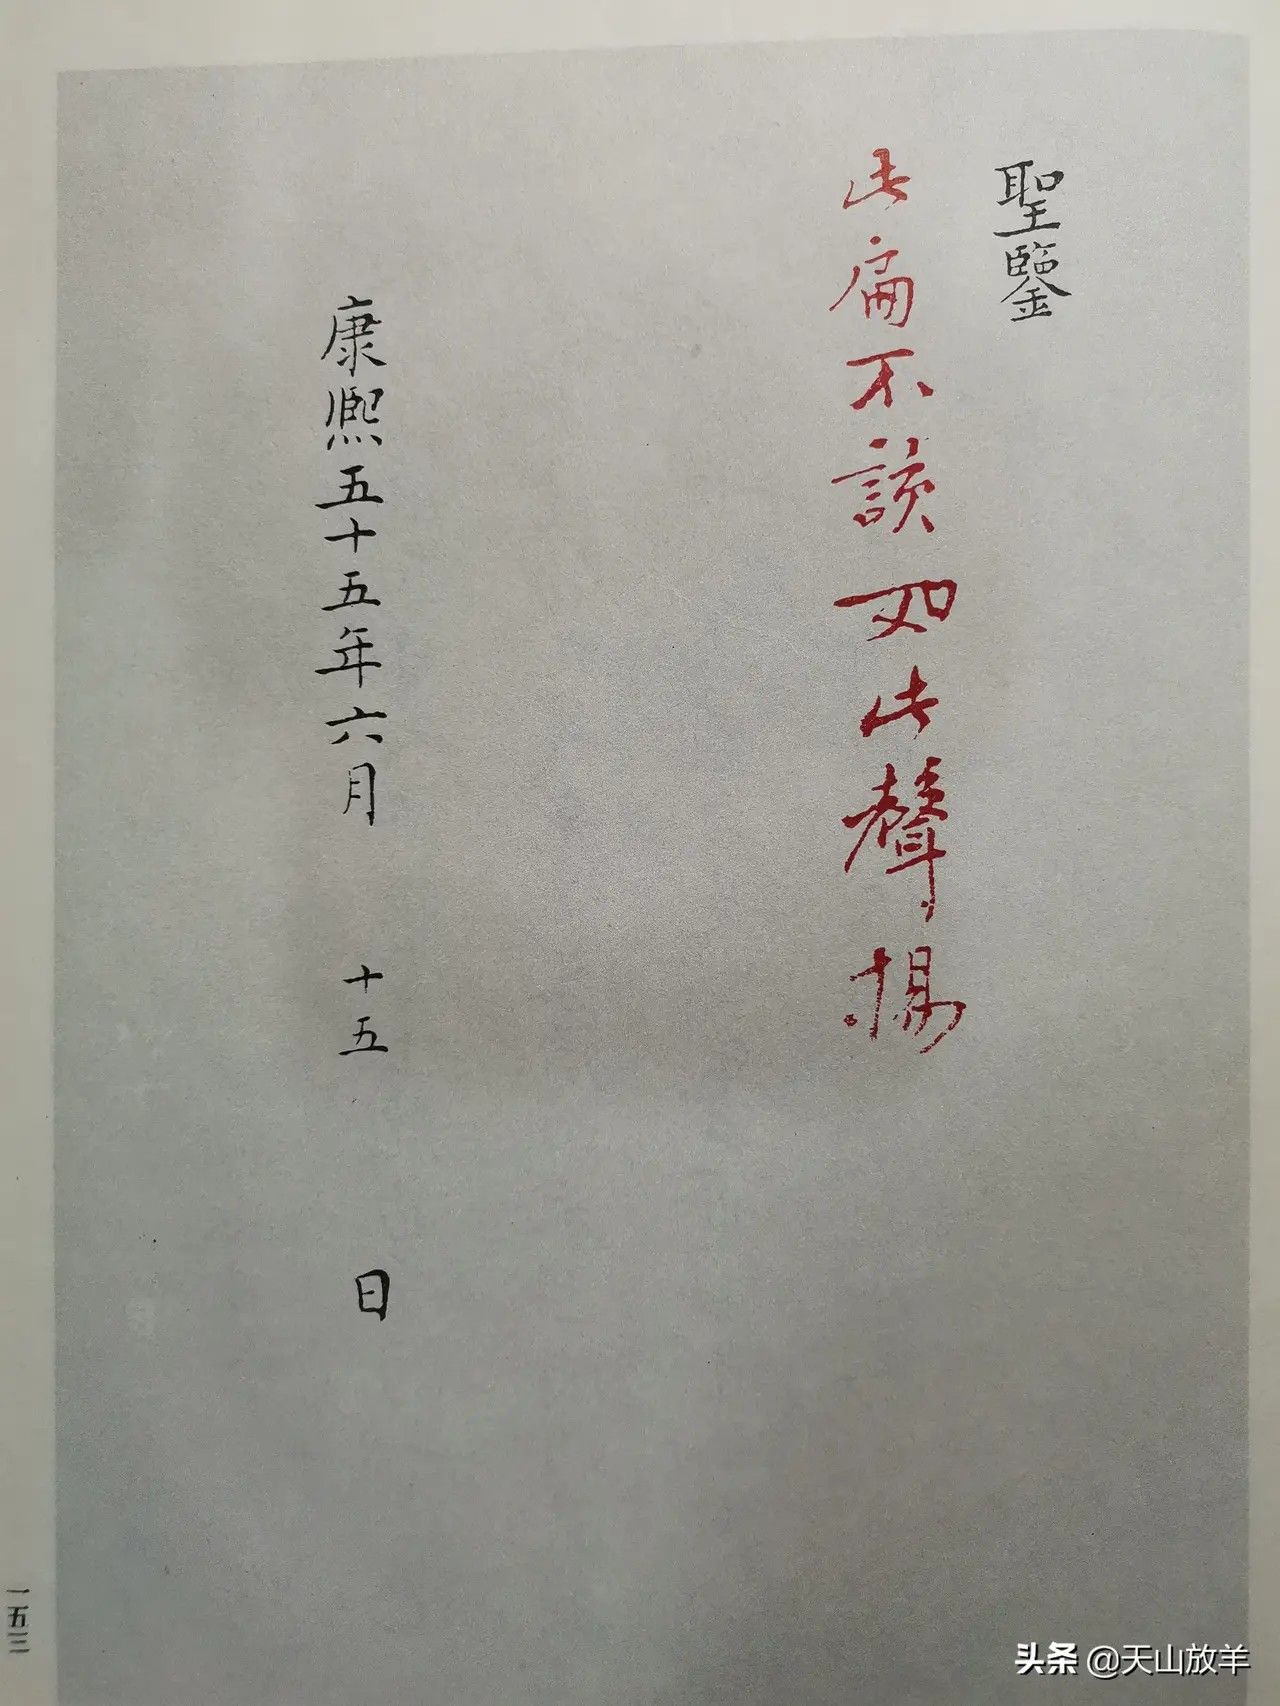 聖鑒
此扁不該如此聲揚
康熙五十五年六月 十五 日
一五三
头条 @天山放羊